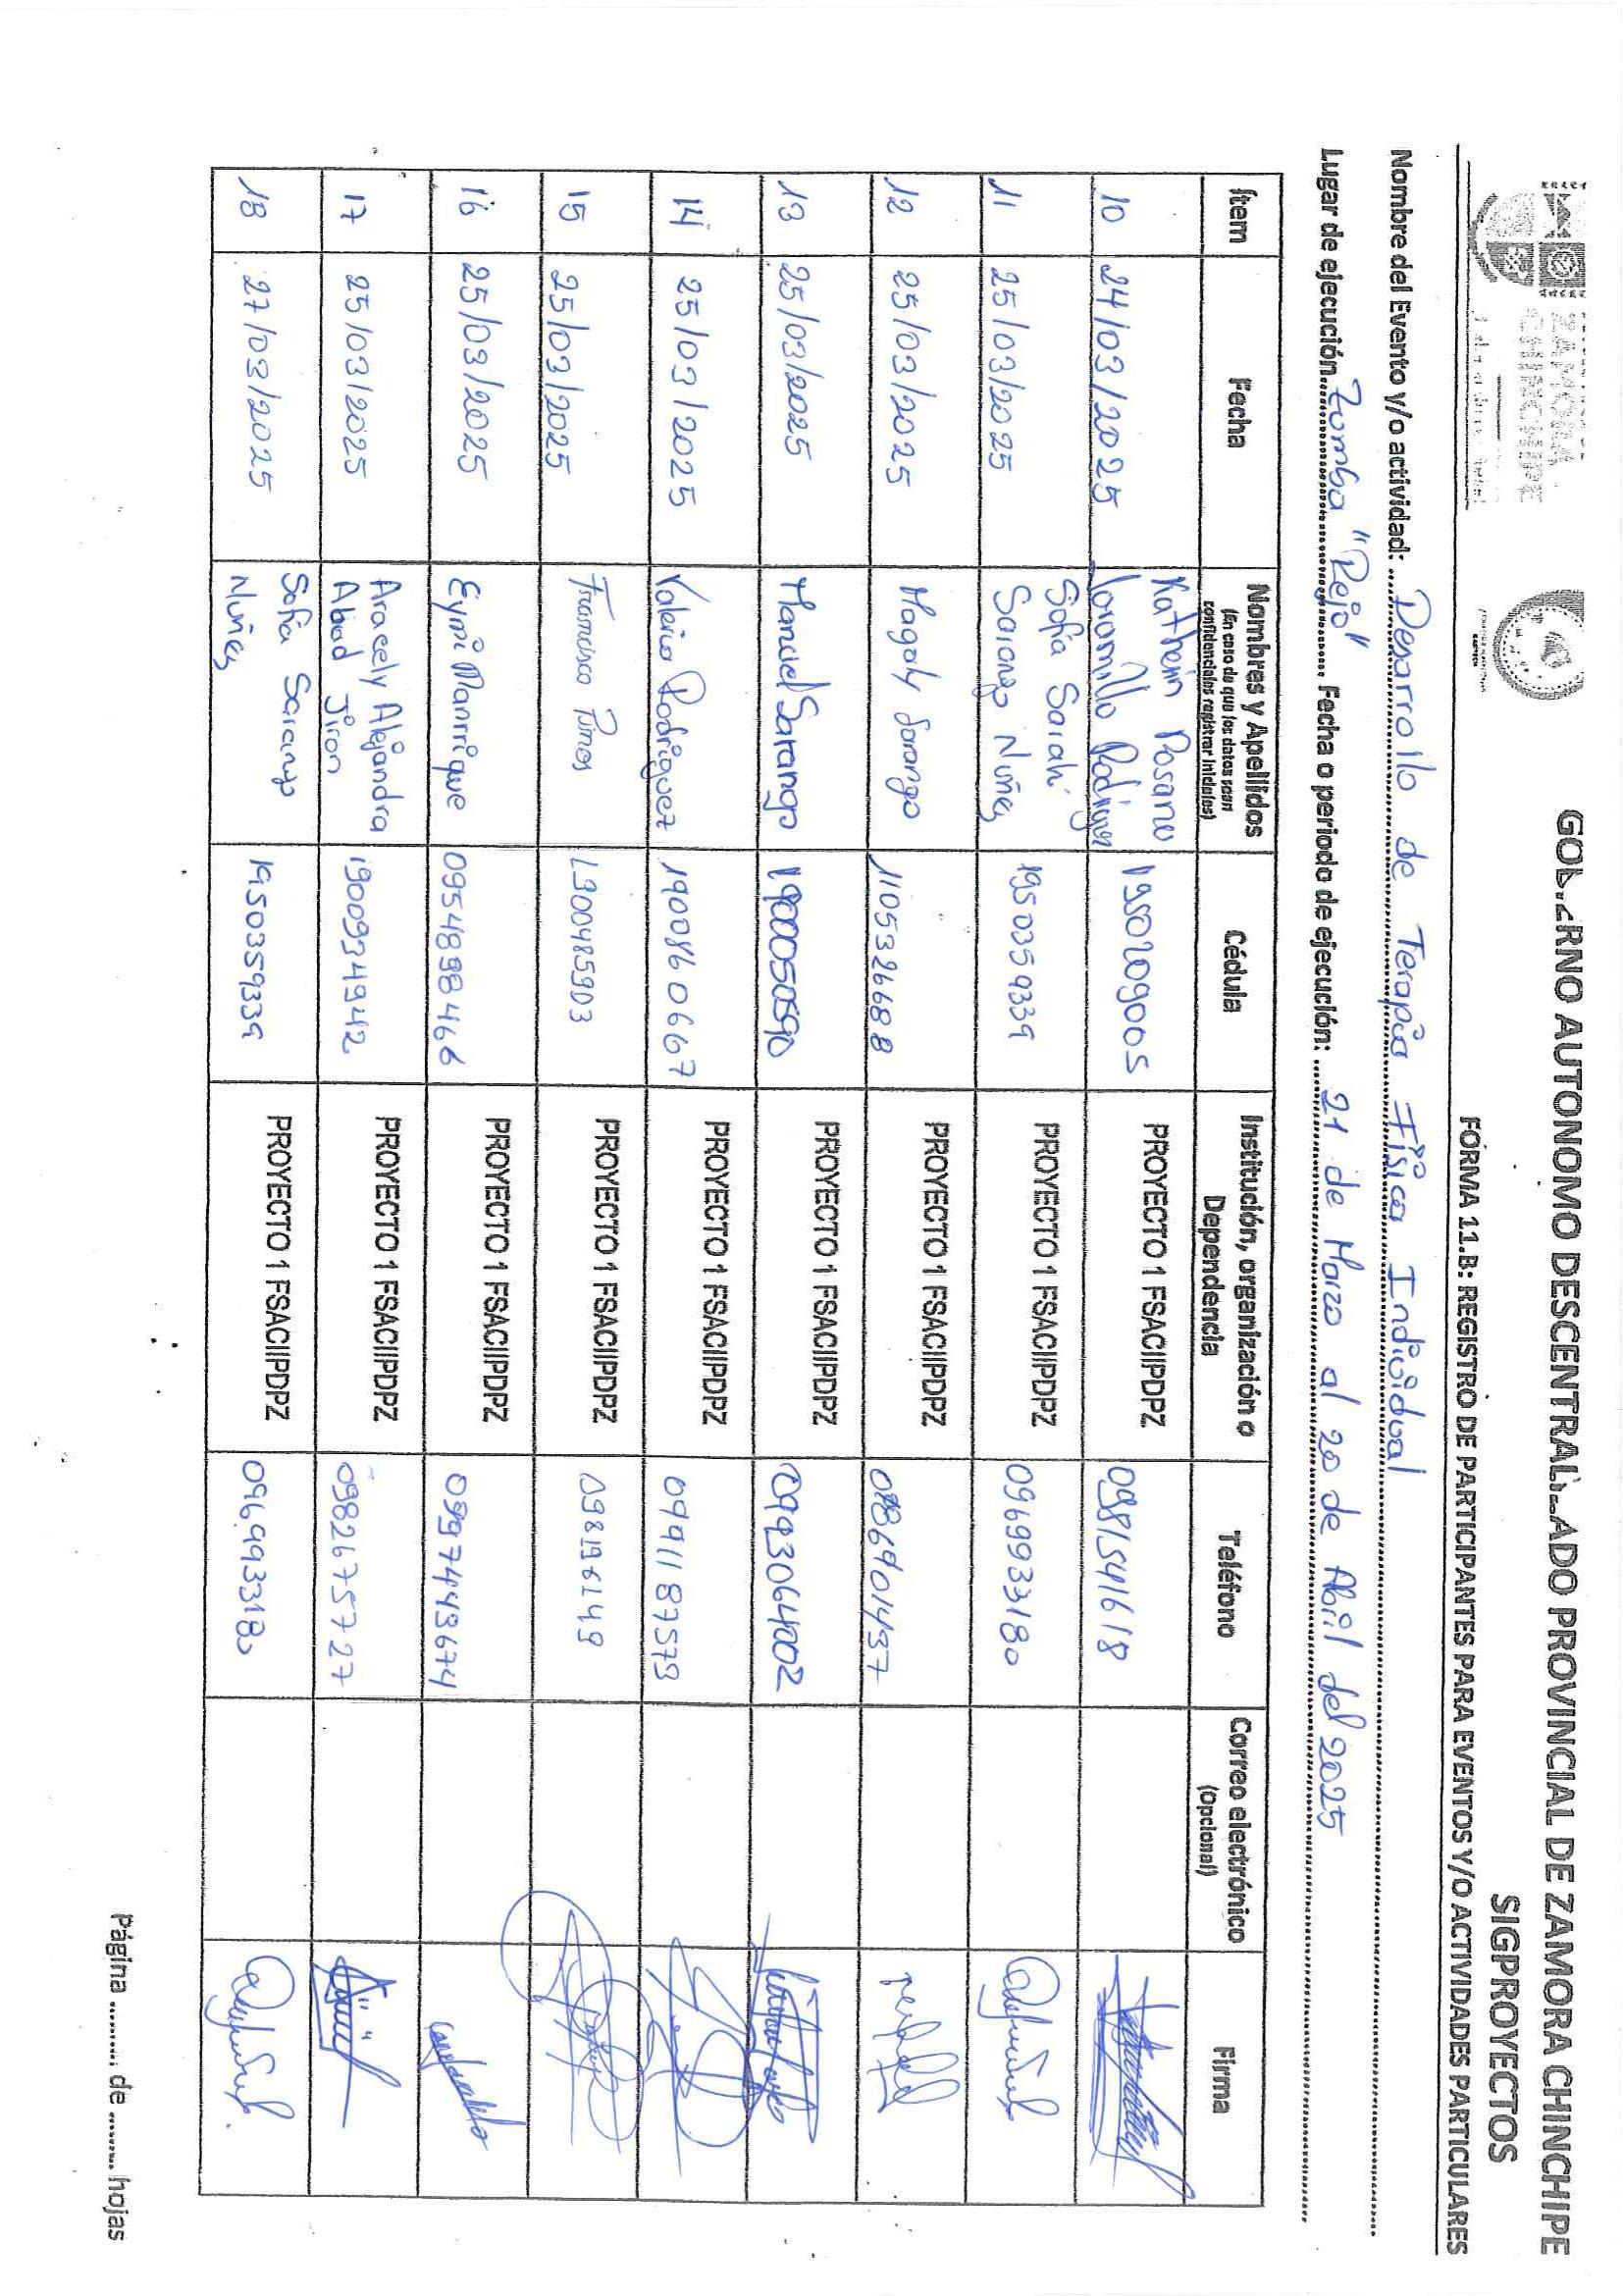 ZAMORA
CHINCHIPE
GOBIERNO AUTONOMO DESCENTRALIZADO PROVINCIAL DE ZAMORA CHINCHIPE
SIGPROYECTOS
FORMA 11.B: REGISTRO DE PARTICIPANTES PARA EVENTOS Y/O ACTIVIDADES PARTICULARES
Nombre del Evento y/o actividad: Desarrollo de Terapia Física Individual
Lugar de ejecución Zumba "Rejo" Fecha o periodo de ejecución: 21 de Marzo al 20 de Abril del 2025
Ítem Fecha Nombres y Apellidos (En caso de que los datos sean confidenciales registrar iniciales) Cédula Institución, organización o Dependencia Teléfono Correo electrónico (Opcional) Firma
10 24/03/2025 Katherin Rosana Jaramillo Rodriguez 1950209005 PROYECTO 1 FSACIIPDPZ 0981541618
11 25/03/2025 Sofia Sarahi Sarango Nuñez 1950359339 PROYECTO 1 FSACIIPDPZ 0969933180
12 25/03/2025 Magaly Sarango 1105326688 PROYECTO 1 FSACIIPDPZ
13 25/03/2025 Manuel Sarango 1900050590 PROYECTO 1 FSACIIPDPZ 0993064002
14 25/03/2025 Valeria Rodriguez 1900860667 PROYECTO 1 FSACIIPDPZ 0991187579
15 25/03/2025 Francisco 1900485903 PROYECTO 1 FSACIIPDPZ
16 25/03/2025 Eymi Manrrique 0954898466 PROYECTO 1 FSACIIPDPZ
17 25/03/2025 Aracely Alejandra Abad Jiron 1900934942 PROYECTO 1 FSACIIPDPZ 0982675727
18 27/03/2025 Sofia Sarango Nuñez 1950359339 PROYECTO 1 FSACIIPDPZ 0969933180
Página ......... de ........ hojas